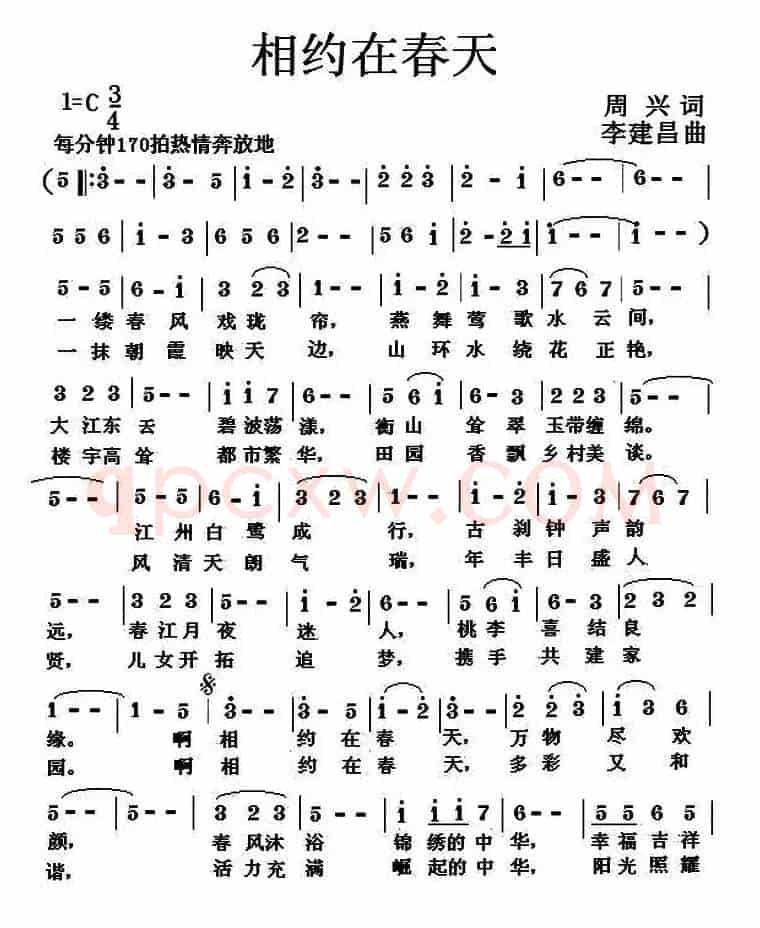 相约在春天
1=C 3/4
周兴词
每分钟170拍热情奔放地
李建昌曲
(5 ‖:3̇ - - | 3̇ - 5 | i - 2̇ | 3̇ - - | 2̇ 2̇ 3̇ | 2̇ - i | 6 - - | 6 - - |
5 5 6 | i - 3 | 6 5 6 | 2 - - | 5 6 i | 2̇ - 2̇i | i - - | i - - )
5 - 5 | 6 - i | 3 2 3 | 1 - - | i - 2̇ | i - 3 | 7 6 7 | 5 - - |
一缕春风戏珑帘，燕舞莺歌水云间，
一抹朝霞映天边，山环水绕花正艳，
3 2 3 | 5 - - | i i 7 | 6 - - | 5 6 i | 3 - 2 | 2 2 3 | 5 - - |
大江东去 碧波荡漾，衡山耸翠玉带缠绵。
楼宇高耸 都市繁华，田园香飘乡村美谈。
qpcxw.com
5 - - | 5 - 5 | 6 - i | 3 2 3 | 1 - - | i - 2̇ | i - 3 | 7 6 7 |
江州白鹭成行，古刹钟声韵
风清天朗气瑞，年丰日盛人
5 - - | 3 2 3 | 5 - - | i - 2̇ | 6 - - | 5 6 i | 6 - 2 | 2 3 2 |
远，春江月夜迷人，桃李喜结良
贤，儿女开拓追梦，携手共建家
1 - - | 1 - 5 | 3̇ - - | 3̇ - 5 | i - 2̇ | 3̇ - - | 2̇ 2̇ 3̇ | i 3 6 |
缘。啊相约在春天，万物尽欢
园。啊相约在春天，多彩又和
5 - - | 5 - - | 3 2 3 | 5 - - | i i i 7 | 6 - - | 5 5 6 6 |
颜，春风沐浴锦绣的中华，幸福吉祥
谐，活力充满崛起的中华，阳光照耀